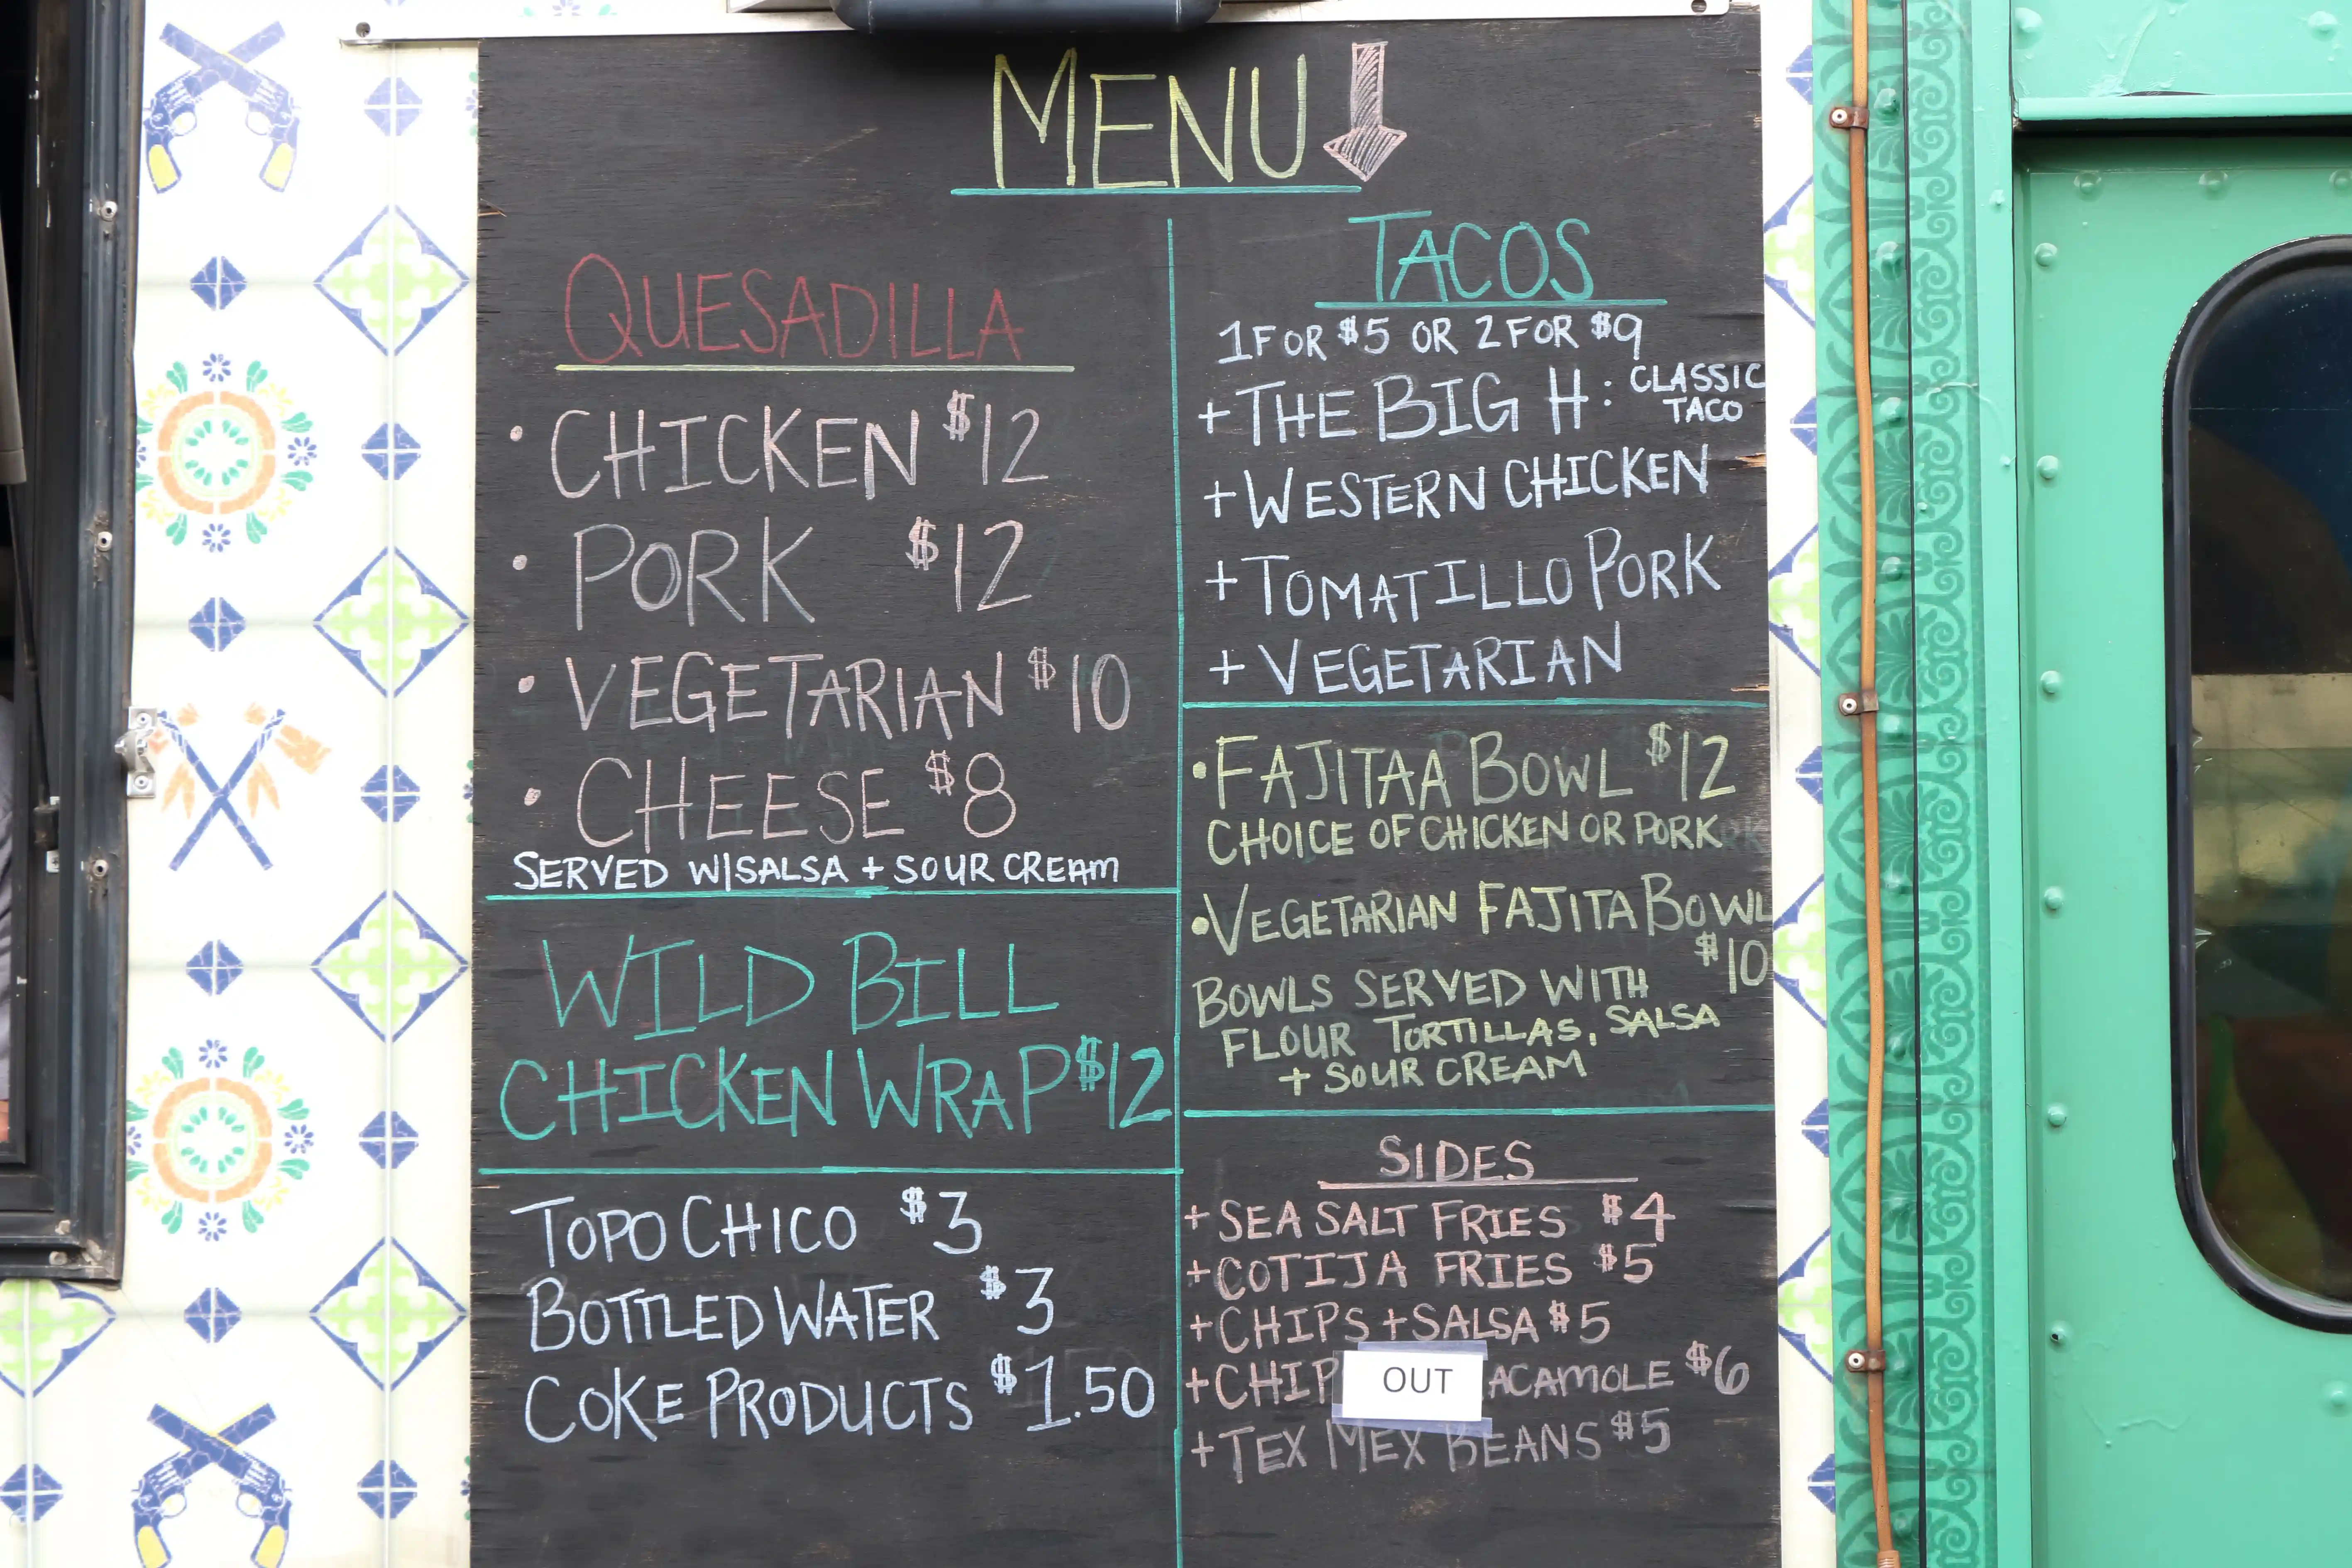 MENU
QUESADILLA
• CHICKEN $12
• PORK $12
• VEGETARIAN $10
• CHEESE $8
SERVED W/SALSA + SOUR CREAM
WILD BILL
CHICKEN WRAP $12
TOPO CHICO $3
BOTTLED WATER $3
COKE PRODUCTS $1.50
TACOS
1 FOR $5 OR 2 FOR $9
+ THE BIG H: CLASSIC
TACO
+ WESTERN CHICKEN
+ TOMATILLO PORK
+ VEGETARIAN
• FAJITAA BOWL $12
CHOICE OF CHICKEN OR PORK
• VEGETARIAN FAJITA BOWL
$10
BOWLS SERVED WITH
FLOUR TORTILLAS, SALSA
+ SOUR CREAM
SIDES
+ SEA SALT FRIES $4
+ COTIJA FRIES $5
+ CHIPS + SALSA $5
+ CHIP OUT ACAMOLE $6
+ TEX MEX BEANS $5